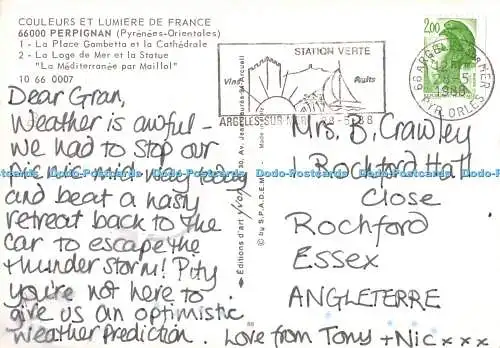 COULEURS ET LUMIERE DE FRANCE
66000 PERPIGNAN (Pyrénées-Orientales)
1 - La Place Gambetta et la Cathédrale
2 - La Loge de Mer et la Statue
"La Méditerranée par Maillol"
10 66 0007
Dear Gran,
Weather is awful -
we had to stop our
picnic mid-way today
and beat a hasty
retreat back to the
car to escape the
thunder storm! Pity
you're not here to
give us an optimistic
weather prediction. Love from Tony + Nic x x x
STATION VERTE
Vins
Fruits
ARGELES-SUR-MER
Editions d'art yvon
© by S.P.A.D.E.M.
Made in
2,00
66 ARGELES S MER
28-5
1988
PYR. ORLES
Mrs. B. Crawley
1 Rochford Hall
Close
Rochford
Essex
ANGLETERRE
Dodo-Postcards